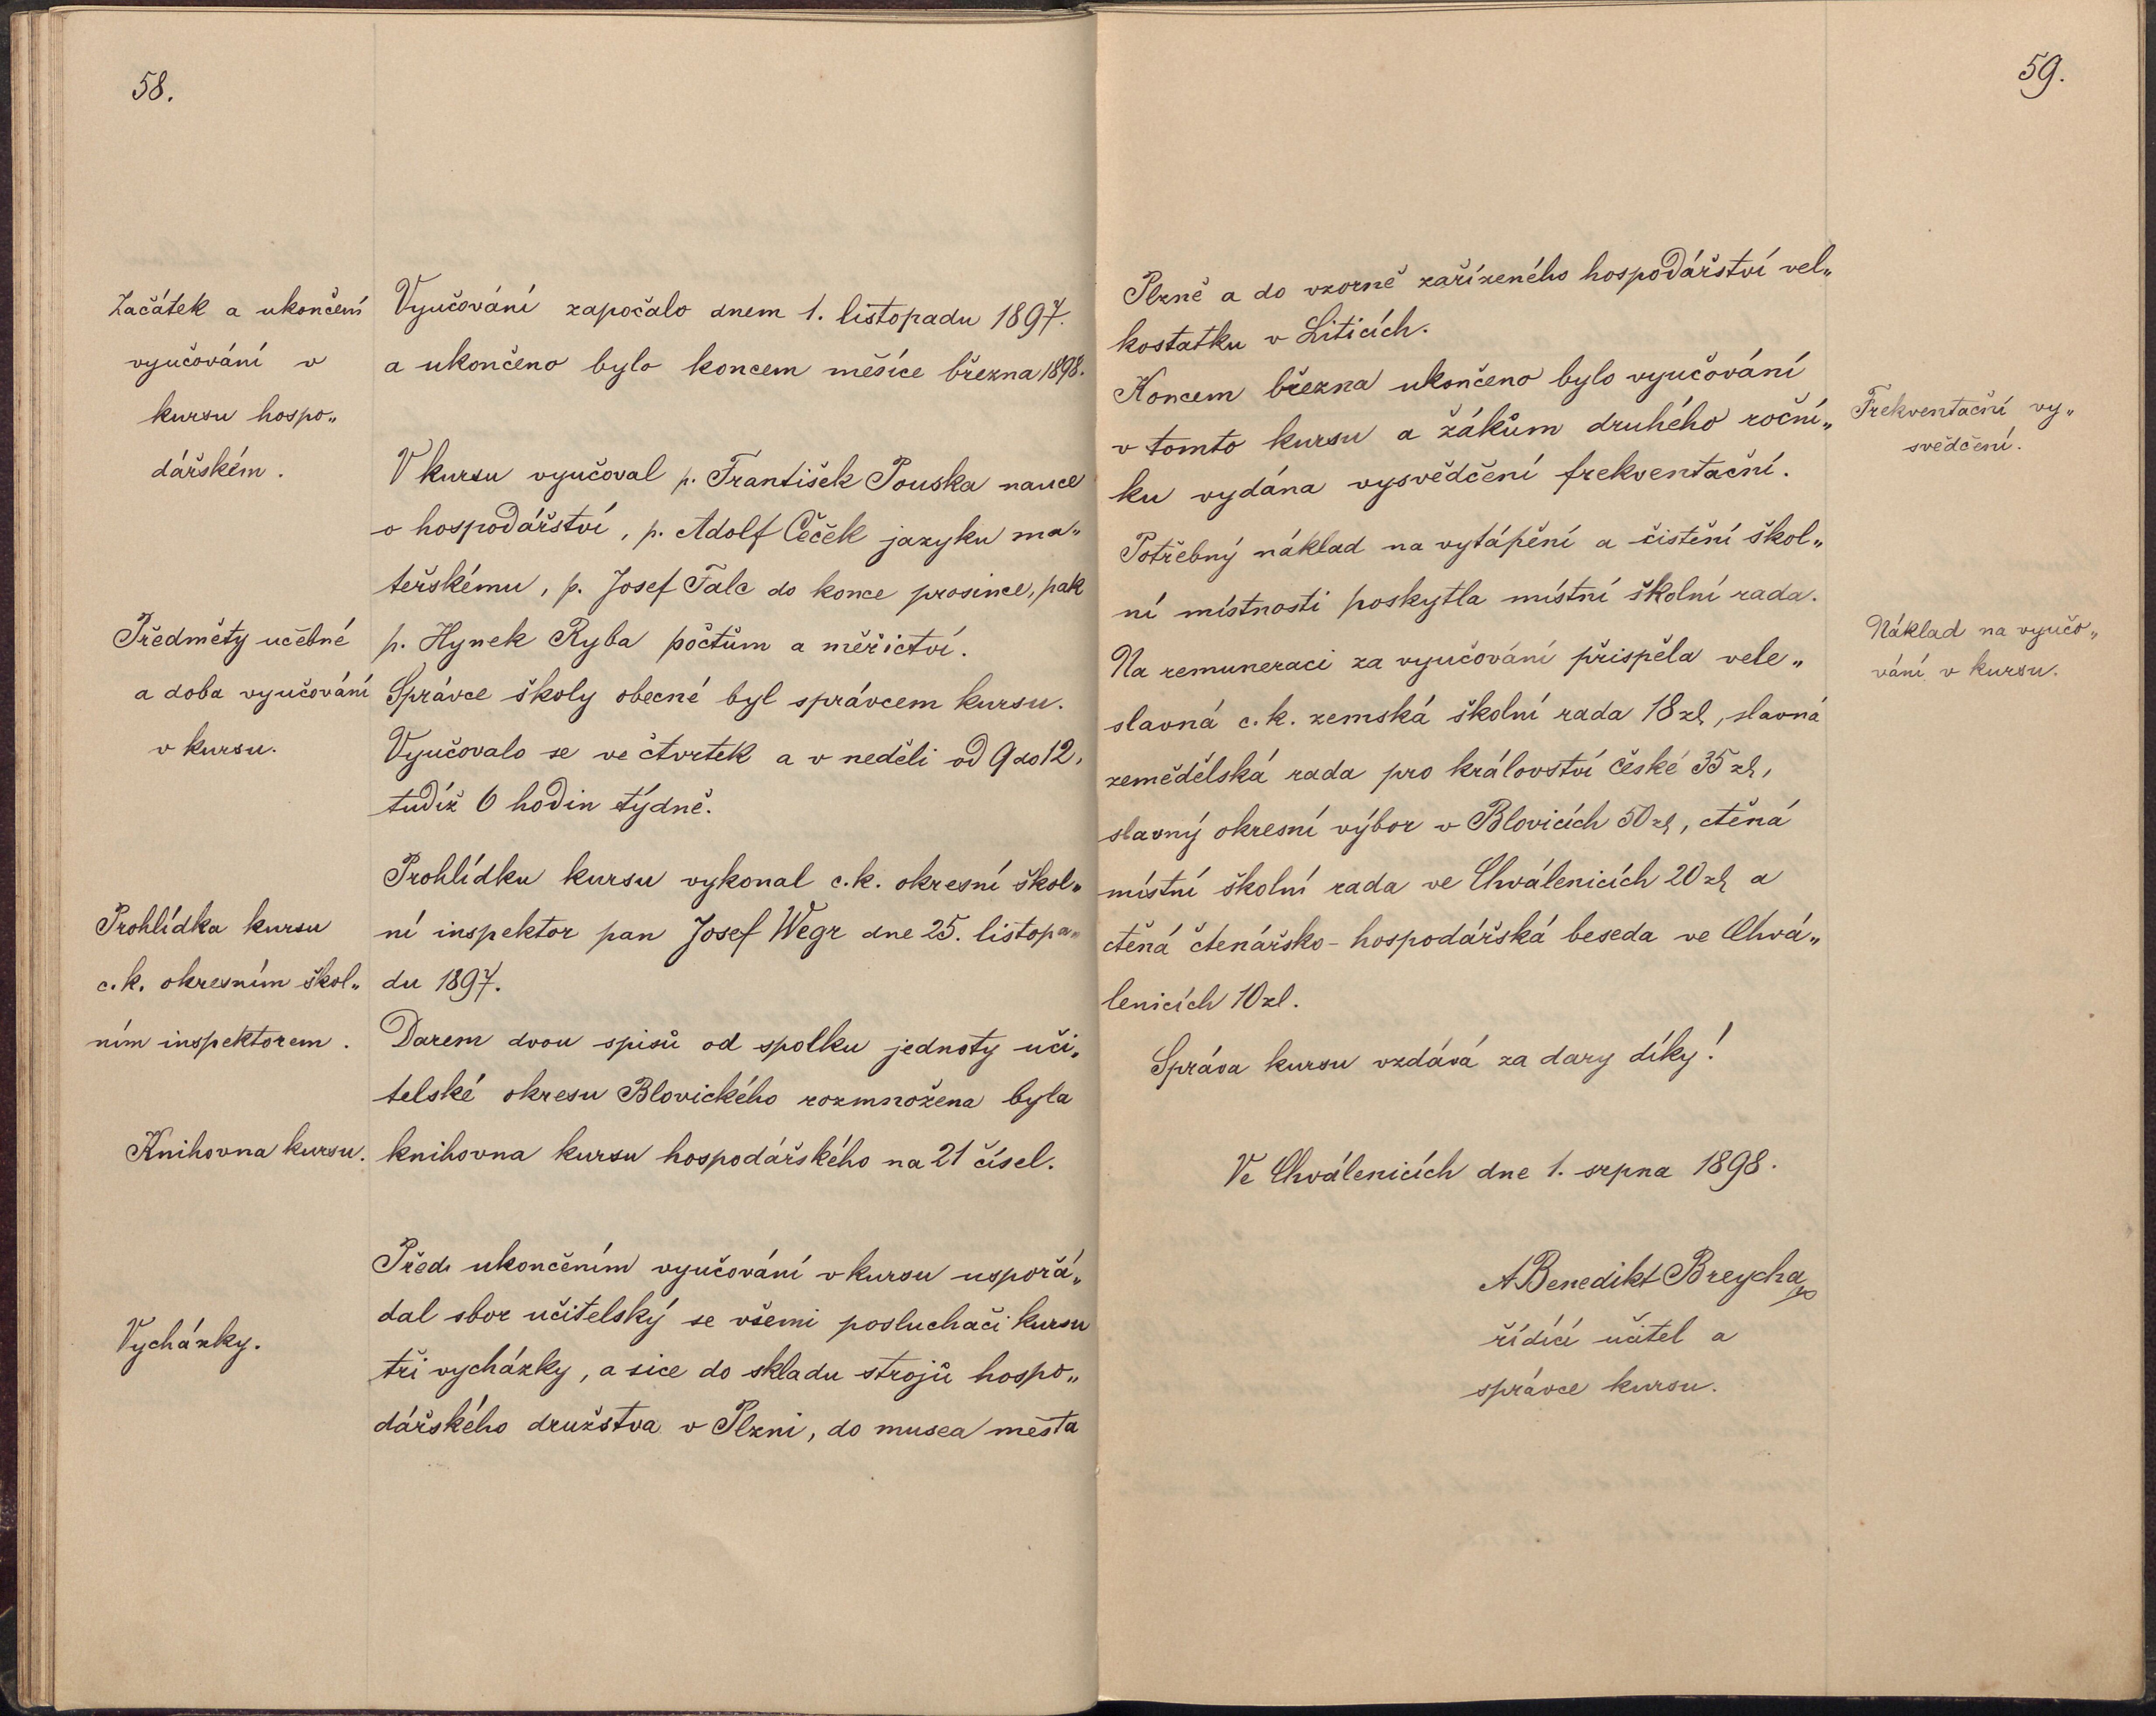 58.
Začátek a ukončení
vyučování v
kursu hospo„
dářském.
Předměty učebné
a doba vyučování
v kursu.
Prohlídka kursu
c. k. okresním škol„
ním inspektorem.
Knihovna kursu.
Vycházky.
Vyučování započalo dnem 1. listopadu 1897.
a ukončeno bylo koncem měsíce března 1898.
V kursu vyučoval p. František Pouska nauce
o hospodářství, p. Adolf Čeček jazyku ma„
teřskému, p. Josef Falc do konce prosince, pak
p. Hynek Ryba počtům a měřictví.
Správce školy obecné byl správcem kursu.
Vyučovalo se ve čtvrtek a v neděli od 9 do 12,
tudíž 6 hodin týdně.
Prohlídku kursu vykonal c. k. okresní škol„
ní inspektor pan Josef Wegr dne 25. listopa„
du 1897.
Darem dvou spisů od spolku jednoty uči„
telské okresu Blovického rozmnožena byla
knihovna kursu hospodářského na 21 čísel.
Před ukončením vyučování v kursu uspořá„
dal sbor učitelský se všemi posluchači kursu
tři vycházky, a sice do skladu strojů hospo„
dářského družstva v Plzni, do musea města
59.
Plzně a do vzorně zařízeného hospodářství vel„
kostatku v Liticích.
Koncem března ukončeno bylo vyučování
v tomto kursu a žákům druhého roční„
ku vydána vysvědčení frekventační.
Potřebný náklad na vytápění a čistění škol„
ní místnosti poskytla místní školní rada.
Na remuneraci za vyučování přispěla vele„
slavná c. k. zemská školní rada 18 zl, slavná
zemědělská rada pro království České 35 zl,
slavný okresní výbor v Blovicích 50 zl, ctěná
místní školní rada ve Chválenicích 20 zl a
ctěná čtenářsko-hospodářská beseda ve Chvá„
lenicích 10 zl.
Správa kursu vzdává za dary díky!
Ve Chválenicích dne 1. srpna 1898.
A Benedikt Breycha
řídící učitel a
správce kursu.
Frekventační vy„
svědčení.
Náklad na vyučo„
vání v kursu.